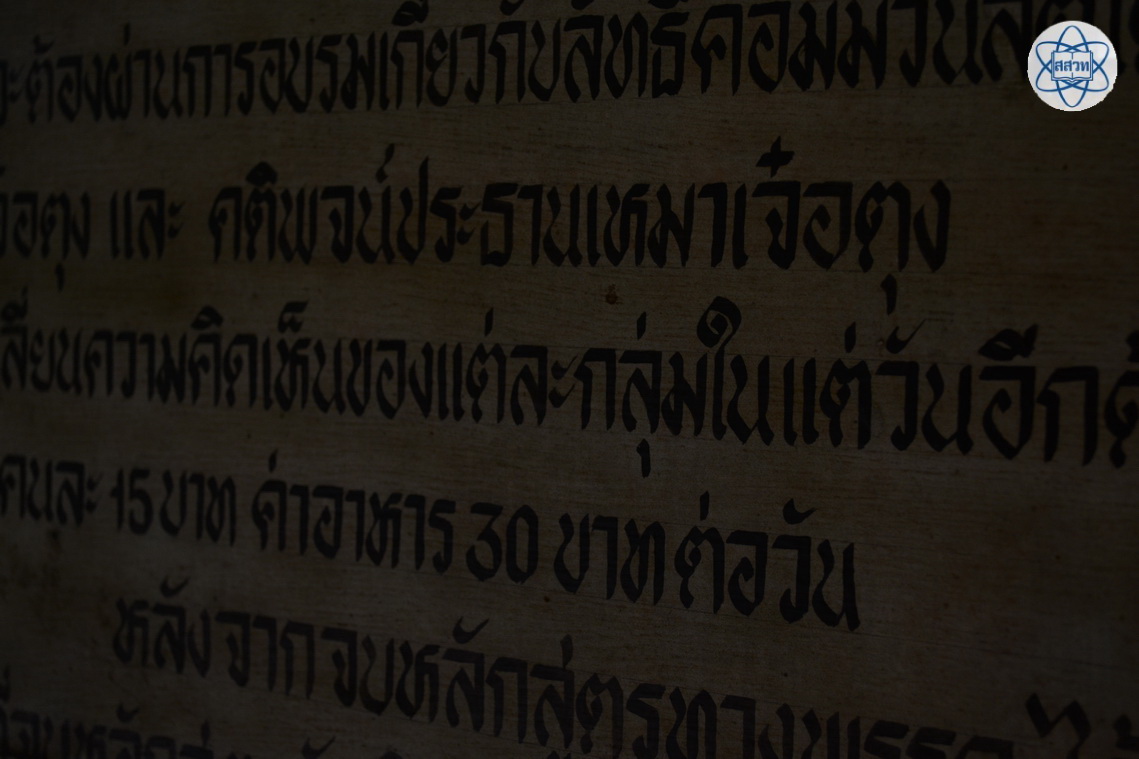 สสวท
ต้องผ่านการอบรมเกี่ยวกับลัทธิคอมมิวนิสต์
คติพจน์ประธานเหมาเจ๋อตุง และ คติพจน์ประธานเหมาเจ๋อตุง
ความคิดเห็นของแต่ละกลุ่มในแต่วันอีก
คนละ 15 บาท ค่าอาหาร 30 บาท ต่อวัน
หลังจากจบหลักสูตรทางพรรค